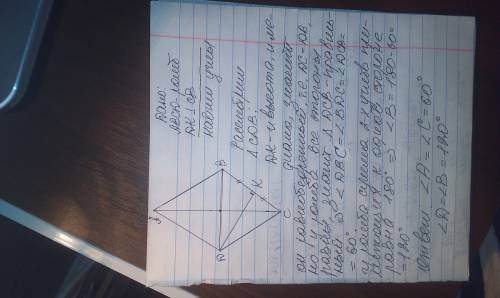 Дано:
ABCD-ромб
DK ⊥ CB
Найти: углы
Рассмотрим
Δ CDB:
DK - и высота, и ме-
диана, значит
он равнобедренный, т.е. DC = DB,
но у ромба все стороны
равны, значит Δ DCB - правиль-
ный ⇒ ∠DBC = ∠BDC = ∠DCB =
= 60°
У ромба сумма 2-х углов при-
лежащих к одной стороне
равна 180° ⇒ ∠B = 180-60° =
= 120°
Ответ: ∠A = ∠C = 60°
∠D = ∠B = 120°
B
K
C
D